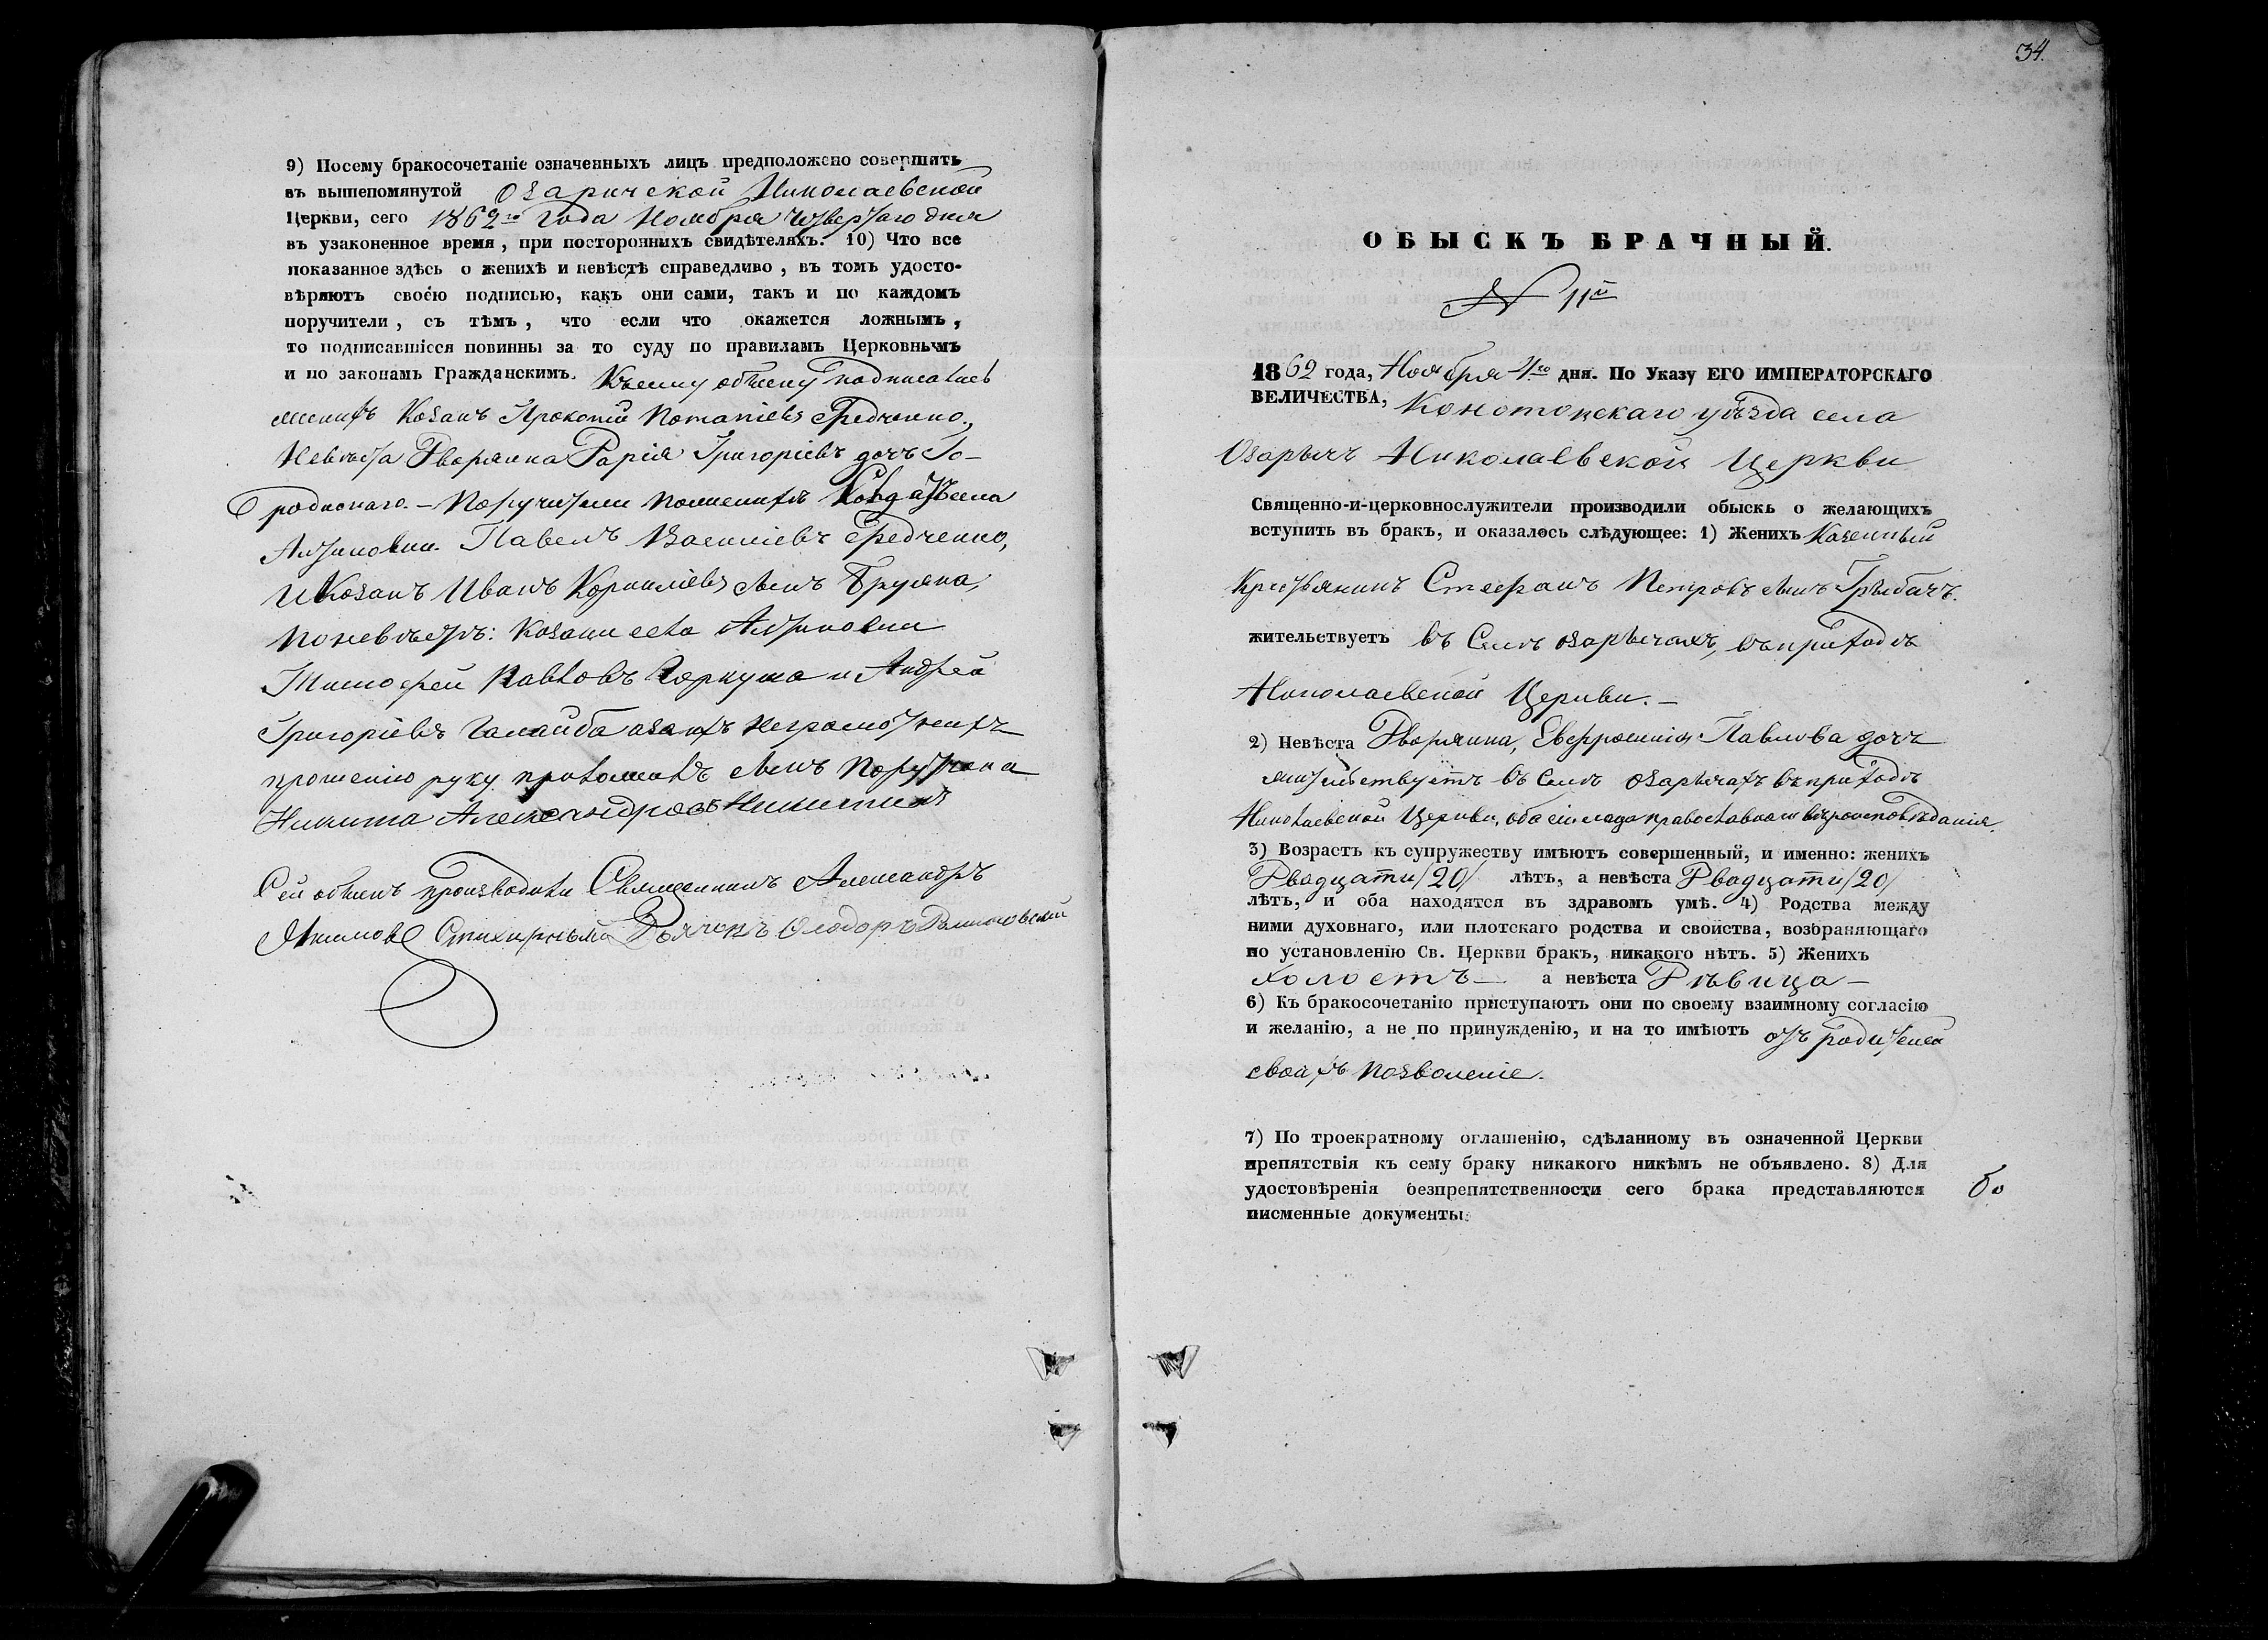 9) Посему бракосочетаніе означенныхъ лицъ предположено совершить
въ вышепомянутой Озаричской Николаевской
Церкви, сего 1862го Года Ноября Четвертаго дня
въ узаконенное время, при постороннихъ свидѣтеляхъ. 10) Что все
показанное здѣсь о женихѣ и невѣстѣ справедливо, въ томъ удосто-
вѣряютъ своею подписью, какъ они сами, такъ и по каждомъ
поручители, съ тѣмъ, что если что окажется ложнымъ,
то подписавшіеся повинны за то суду по правиламъ Церковнымъ
и по законамъ Гражданскимъ. Къ сему обыску подписались
женихъ Козакъ Прокопій Потапіевъ Федченко.,
Невѣста Дворянка Дарія Григоріева дочь Го-
родиского. – Поручители по женихѣ
Павелъ Василіевъ Федченко,
И Козакъ Иванъ Корниліевъ сынъ
По невѣстѣ: Козаки села
Тимофей Павловъ и Андрей
Григоріевъ а за ихъ неграмотныхъ
прошенію руку приложилъ сынъ
Никита Александровъ Никитинъ
Сей обыскъ производили Священникъ Александръ
Якимовъ Дьячекъ Феодоръ
34.
ОБЫСКЪ БРАЧНЫЙ.
N 11й
1862 года, Ноября 4го дня. По Указу ЕГО ИМПЕРАТОРСКАГО
ВЕЛИЧЕСТВА, Конотопскаго уѣзда села
Озарычъ Николаевской Церкви
Священно-и-церковнослужители производили обыскъ о желающихъ
вступить въ бракъ, и оказалось слѣдующее: 1) Женихъ Казенный
Крестьянинъ Стефанъ Петровъ сынъ Грыбачъ.
жительствуетъ въ Селѣ Озарычахъ, въ приходѣ
Николаевской Церкви. –
2) Невѣста Дворянка, Евфросинія Павлова дочь
жительствуетъ въ Селѣ Озарычахъ въ приходѣ
Николаевской Церкви, оба сіи лица православнаго вѣроисповѣданія.
3) Возрастъ къ супружеству имѣютъ совершенный, и именно: женихъ
Двадцати /20/ лѣтъ, а невѣста Двадцати /20/
лѣтъ, и оба находятся въ здравомъ умѣ. 4) Родства между
ними духовнаго, или плотскаго родства и свойства, возбраняющаго
по установленію Св. Церкви бракъ, никакого нѣтъ. 5) Женихъ
холостъ – а невѣста Дѣвица –
6) Къ бракосочетанію приступаютъ они по своему взаимному согласію
и желанію, а не по принужденію, и на то имѣютъ отъ родителей
своихъ позволеніе.
7) По троекратному оглашенію, сдѣланному въ означенной Церкви
препятствія къ сему браку никакого никѣмъ не объявлено. 8) Для
удостовѣренія безпрепятственности сего брака представляются
писменные документы: